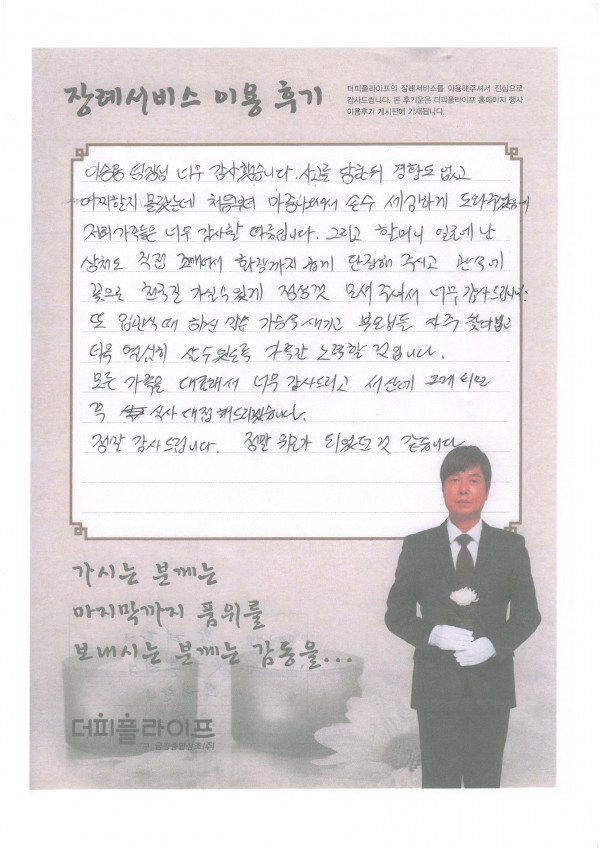 장례서비스 이용 후기
더피플라이프의 장례서비스를 이용해주셔서 진심으로
감사드립니다. 본 후기문은 더피플라이프 홈페이지 행사
이용후기 게시판에 기재됩니다.
이승용 팀장님 너무 감사했습니다. 사고를 당한뒤 경황도 없고
어찌할지 몰랐는데 처음부터 마중나와서 손수 세심하게 도와주셨기에
저희가족들은 너무 감사할 따름입니다. 그리고 할머니 얼굴에 난
상처도 직접 꼬매어서 화장까지 곱게 단장해 주시고 관속에
꽃으로 천국길 가실수있게 정성껏 모셔 주셔서 너무 감사드립니다.
또 입관식때 하신 말씀 가슴속 새기고 부모님들 자주 찾아뵙고
더욱 열심히 살수있도록 가족간 노력할 것입니다.
모든 가족을 대표해서 너무 감사드리고 서산에 오게 되면
꼭 식사 대접 해드리겠습니다.
정말 감사드립니다. 정말 위로가 되었던 것 같습니다
가시는 분께는
마지막까지 품위를
보내시는 분께는 감동을...
더피플라이프